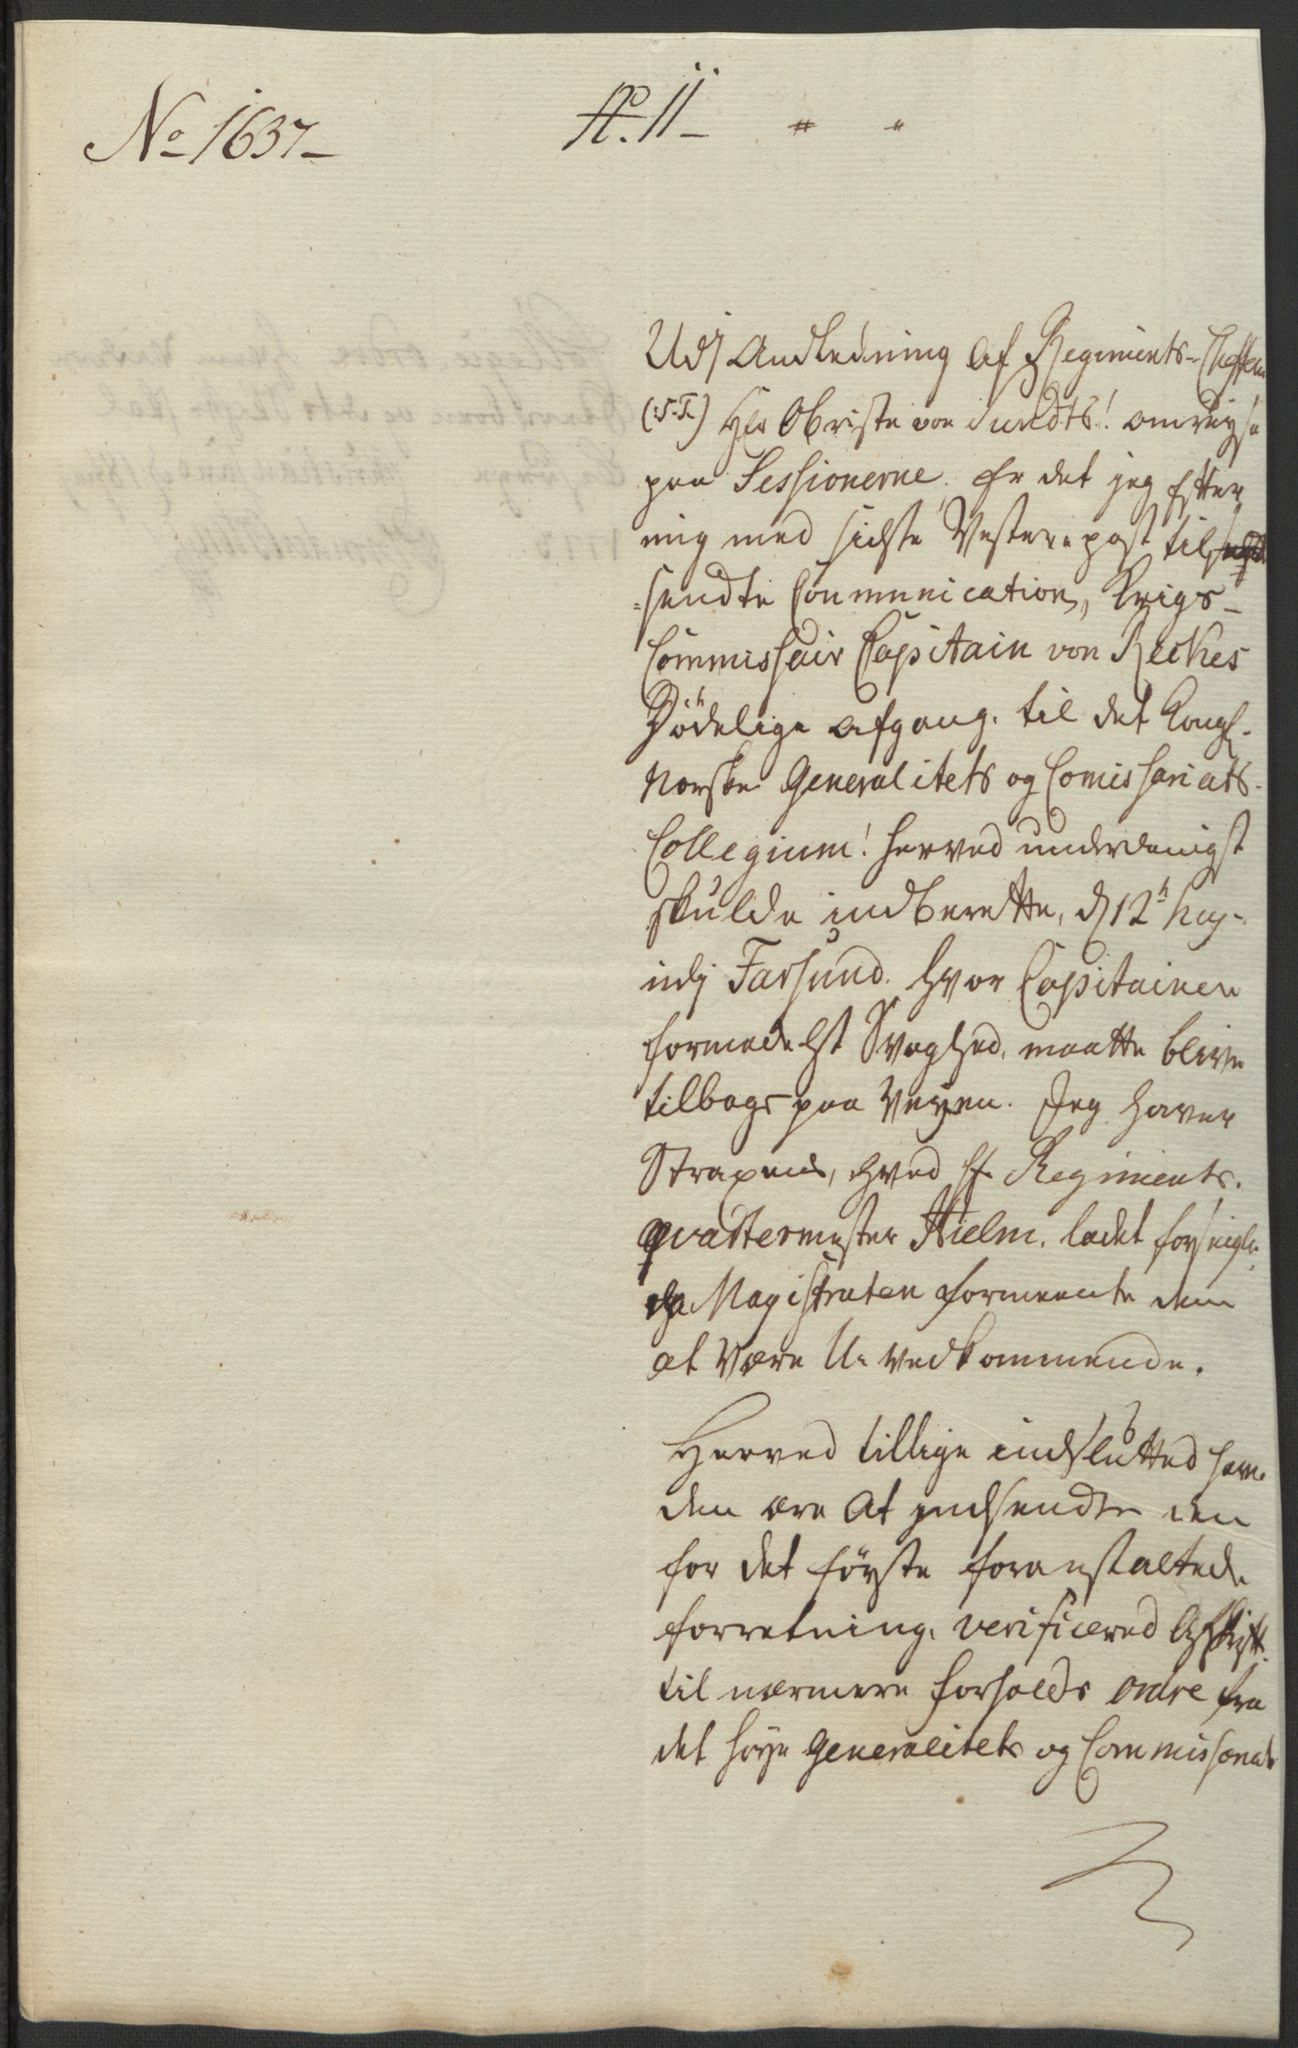 No 1637
No. 11
Udj Andledning af Regiments-Cheffens
(:S.T.) Hr Obriste von Sundts! omreyse
paa Sessionerne, er det jeg efter
mig med sidste Vester-post til
-sendte Communication, Krigs-
Commissair Capitain von Reckes
Dödelige afgang. til det Kongl.
Norske Generalitets og Comissariats-
Collegium! herved underdanigst
skulde indberette, d 12h huj.
udj Farsund. hvor Capitainen
formedelst Svaghed, maatte blive
tilbage paa Veyen. Jeg haver
Strax ved Hr Regiments-
qvarttermester Hielm. ladet forseigle
da Magistraten formeente dem
at være U-vedkommende.
Herved tillige indslutted have
den ære at indsende den
for det förste foranstaltede
forretning, verificered Afskrift
til nærmere forholds ordre fra
det høye Generalitets og Commissariats